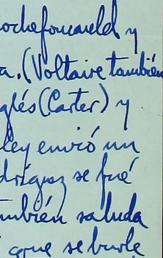 ochefoucauld y
a. (Voltaire también
glés (Carter) y
ley envió un
dríguez se fué
mbién saluda
que se burle